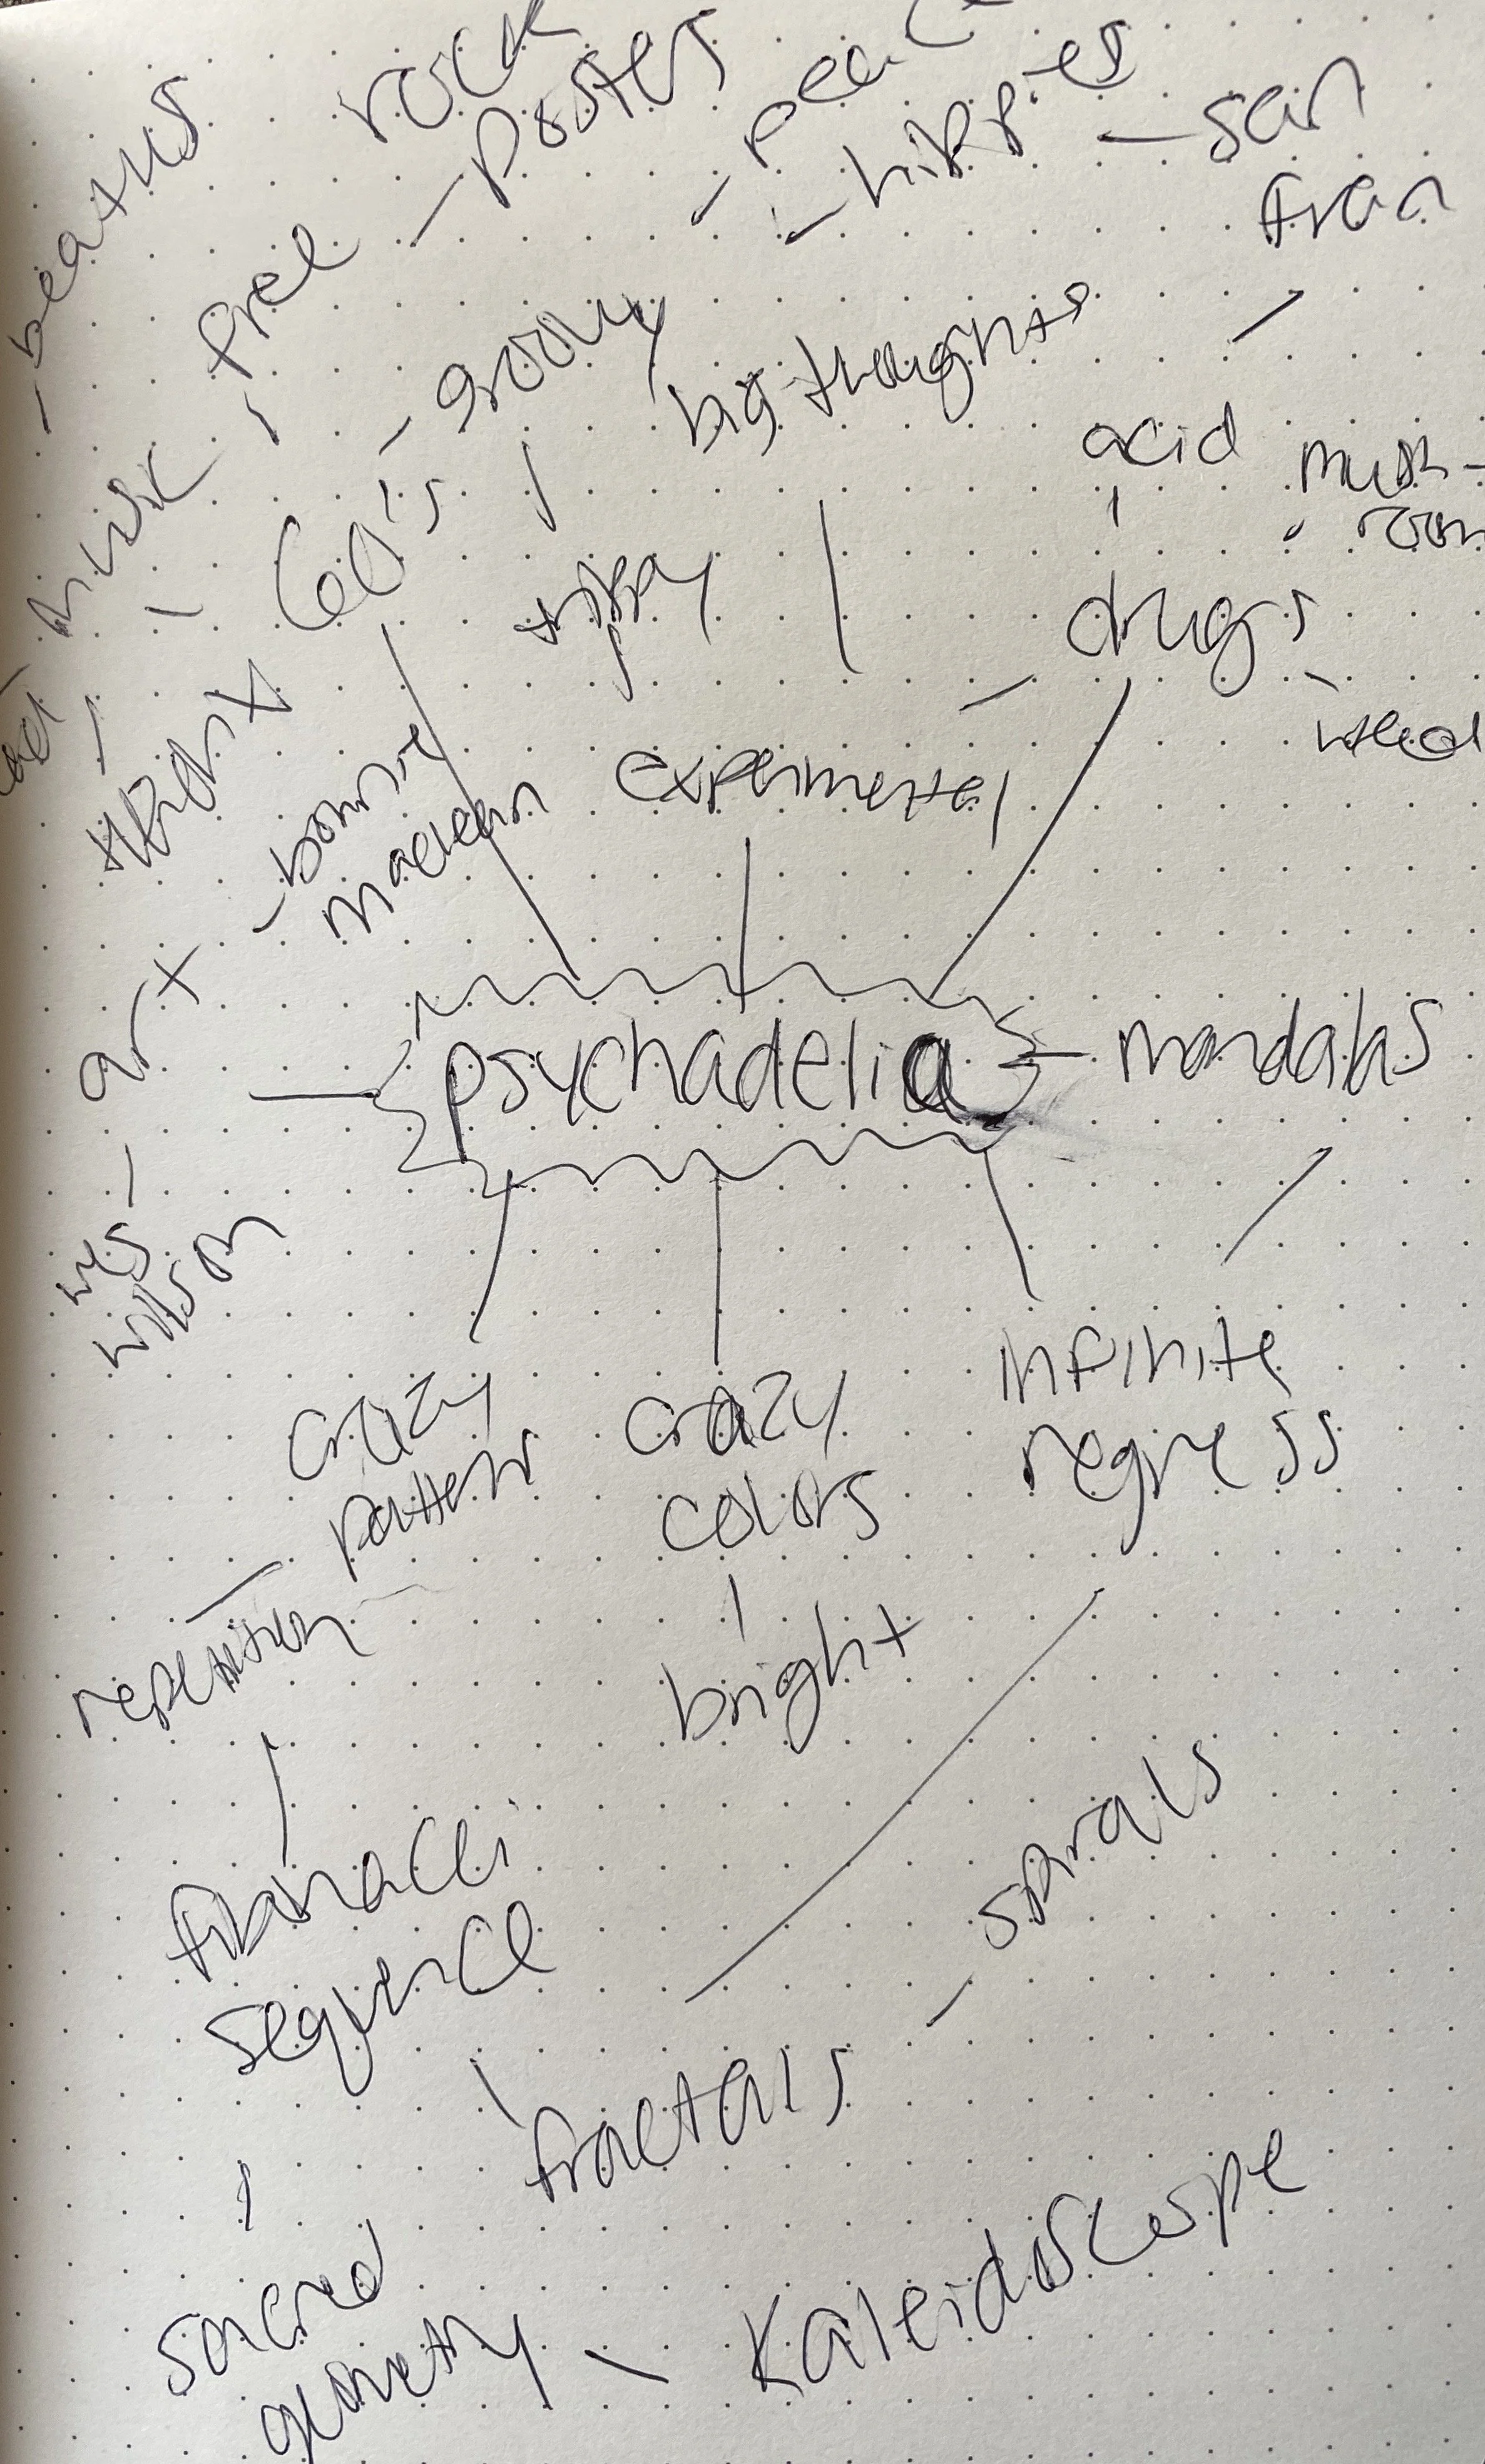 rock
poster
hippies
san
fran
beatles
free
groovy
big thoughts
music
60's
trippy
acid
mush-
room
drugs
weed
experimental
bonnie
maclean
art
psychadelia
mandalas
wes
wilson
crazy
pattern
crazy
colors
infinite
regress
repetition
bright
spirals
fibonacci
sequence
fractals
sacred
geometry
kaleidoscope